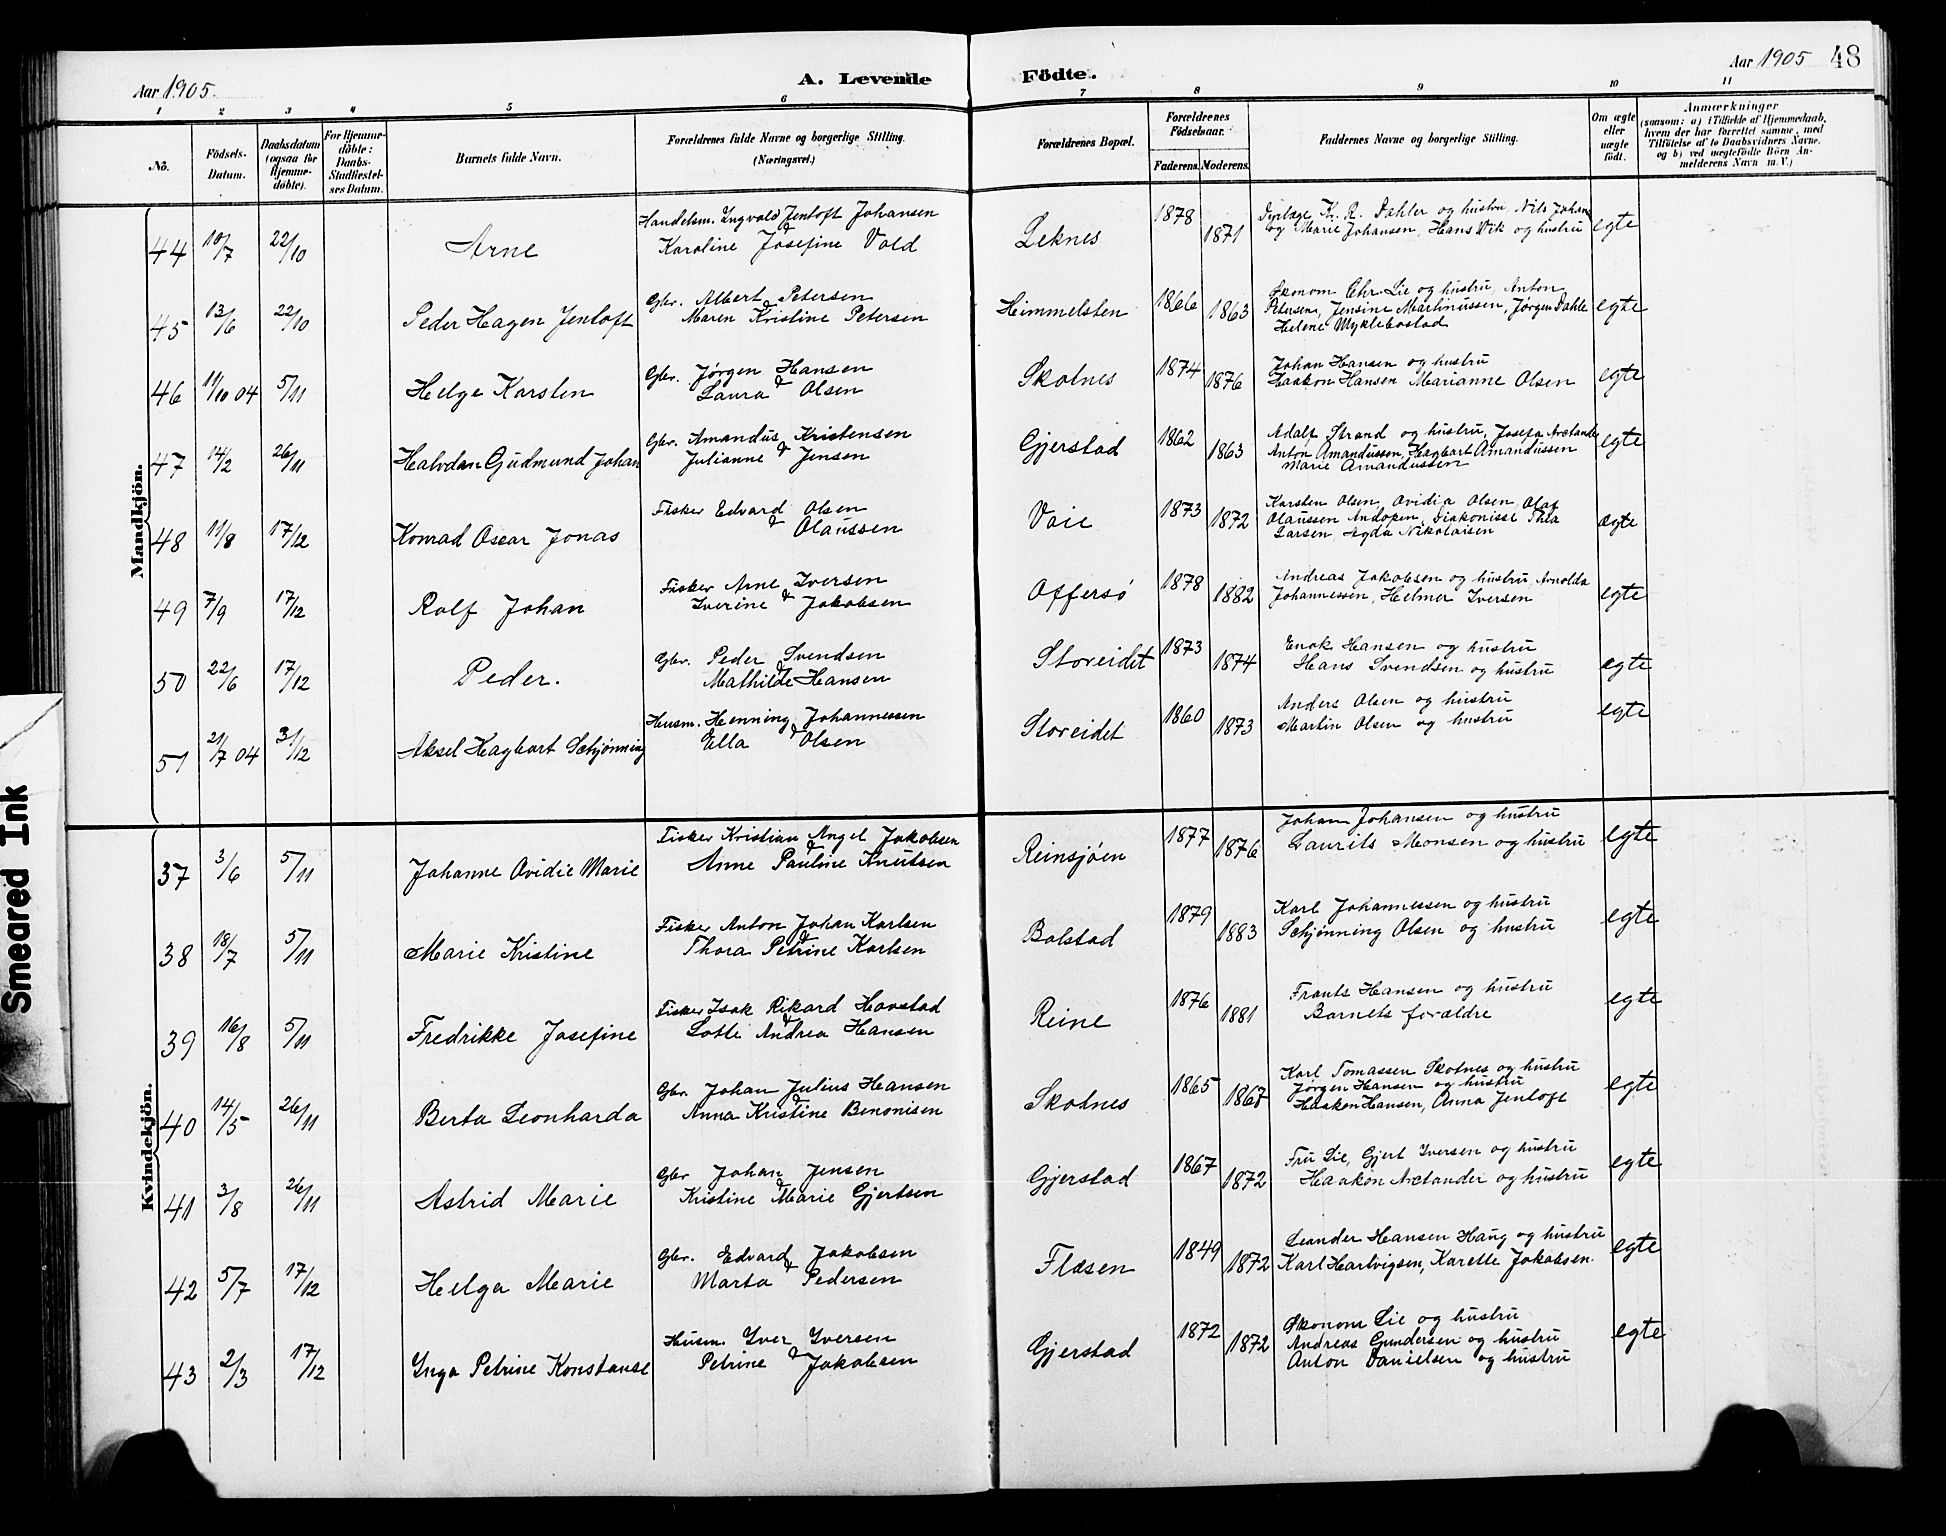 Aar 1905.
A. Levende Födte.
Aar 1905 48
1 2 3 4 5 6 7 8 9 10 11
No.
Födsels-Datum.
Daabsdatum (ogsaa for Hjemmedöbte).
For Hjemmedöbte: Daabs-Stadfæstelses Datum.
Barnets fulde Navn.
Forældrenes fulde Navne og borgerlige Stilling. (Næringsvei.)
Forældrenes Bopæl.
Forældrenes Födselsaar.
Faderens. Moderens.
Faddernes Navne og borgerlige Stilling.
Om ægte eller uægte födt.
Anmærkninger
(saasom: a) i Tilfælde af Hjemmedaab, hvem der har forrettet samme, med Tilföielse af to Daabsvidners Navne, og b) ved uægtefödte Börn Anmelderens Navn m. V.)
Mandkjön.
44 10/7 22/10 Arne Handelsm. Ingvald Jentoft Johansen & Karoline Josefine Vold Leknes 1878 1871 K. R. Dahler og hustru Nils Johans og Marie Johansen, Hans Vik og hustru egte
45 13/6 22/10 Peder Hagen Jentoft Gbr. Albert Petersen & Maren Kristine Petersen Himmelsten 1866 1863 Økonom Chr. Lie og hustru, Anton Petersen, Jensine Martinussen, Jørgen Dahle Helene Myklebostad egte
46 11/10 04 5/11 Helge Karsten Gbr. Jørgen Hansen & Laura Olsen Skotnes 1874 1876 Johan Hansen og hustru Haakon Hansen Marianne Olsen egte
47 14/2 26/11 Halvdan Gudmund Johan Gbr. Amandus Kristensen & Julianne Jensen Gjerstad 1862 1863 Adolf Strand og hustru, Josefa Arctander Anton Amandussen, Hagbart Amandussen Marie Amandussen egte
48 11/8 17/12 Konrad Oscar Jonas Fisker Edvard Olsen & Olaussen Voie 1873 1872 Karsten Olsen, Ovidia Olsen Olaf Olaussen Andopen, Diakonisse Thea Larsen, Agda Nikolaisen ægte
49 7/9 17/12 Rolf Johan Fisker Arne Iversen & Iverine Jakobsen Offersø 1878 1882 Andreas Jakobsen og hustru, Arnolda Johannessen, Helmer Iversen egte
50 22/6 17/12 Peder. Gbr. Peder Svendsen & Mathilde Hansen Storeidet 1873 1874 Enok Hansen og hustru Hans Svendsen og hustru ægte
51 21/7 04 31/12 Aksel Hagbart Schjønning Husm. Henning Johannessen & Ella Olsen Storeidet 1860 1873 Anders Olsen og hustru Martin Olsen og hustru egte
Kvindekjön.
37 3/6 5/11 Johanne Ovidie Marie Fisker Kristian Angel Jakobsen & Anne Pauline Knutsen Reinsjøen 1877 1876 Johan Johansen og hustru Laurits Monsen og hustru egte
38 18/7 5/11 Marie Kristine Fisker Anton Johan Karlsen & Thora Petrine Karlsen Bolstad 1879 1883 Karl Johannessen og hustru Schjønning Olsen og hustru egte
39 16/8 5/11 Fredrikke Josefine Fisker Isak Rikard Havstad & Lotte Andrea Hansen Reine 1876 1881 Frants Hansen og hustru Barnets forældre egte
40 14/5 26/11 Berta Leonharda Gbr. Johan Julius Hansen & Anna Kristine Benonisen Skotnes 1865 1867 Karl Tomassen Skotnes og hustru Jørgen Hansen og hustru Haakon Hansen, Anna Jentoft egte
41 3/8 26/11 Astrid Marie Gbr Johan Jensen & Kristine Marie Gjertsen Gjerstad 1867 1872 Fru Lie, Gjert Iversen og hustru Haakon Arctander og hustru egte
42 5/7 17/12 Helga Marie Gbr. Edvard Jakobsen & Marta Pedersen Flæsen 1849 1872 Leander Hansen Haug og hustru Karl Hartvigsen, Karette Jakobsen. egte
43 2/3 17/12 Inga Petrine Konstanse Husm. Iver Iversen & Petrine Jakobsen Gjerstad 1872 1872 Økonom Lie og hustru Andreas Gundersen og hustru Anton Danielsen og hustru egte
Smeared Ink